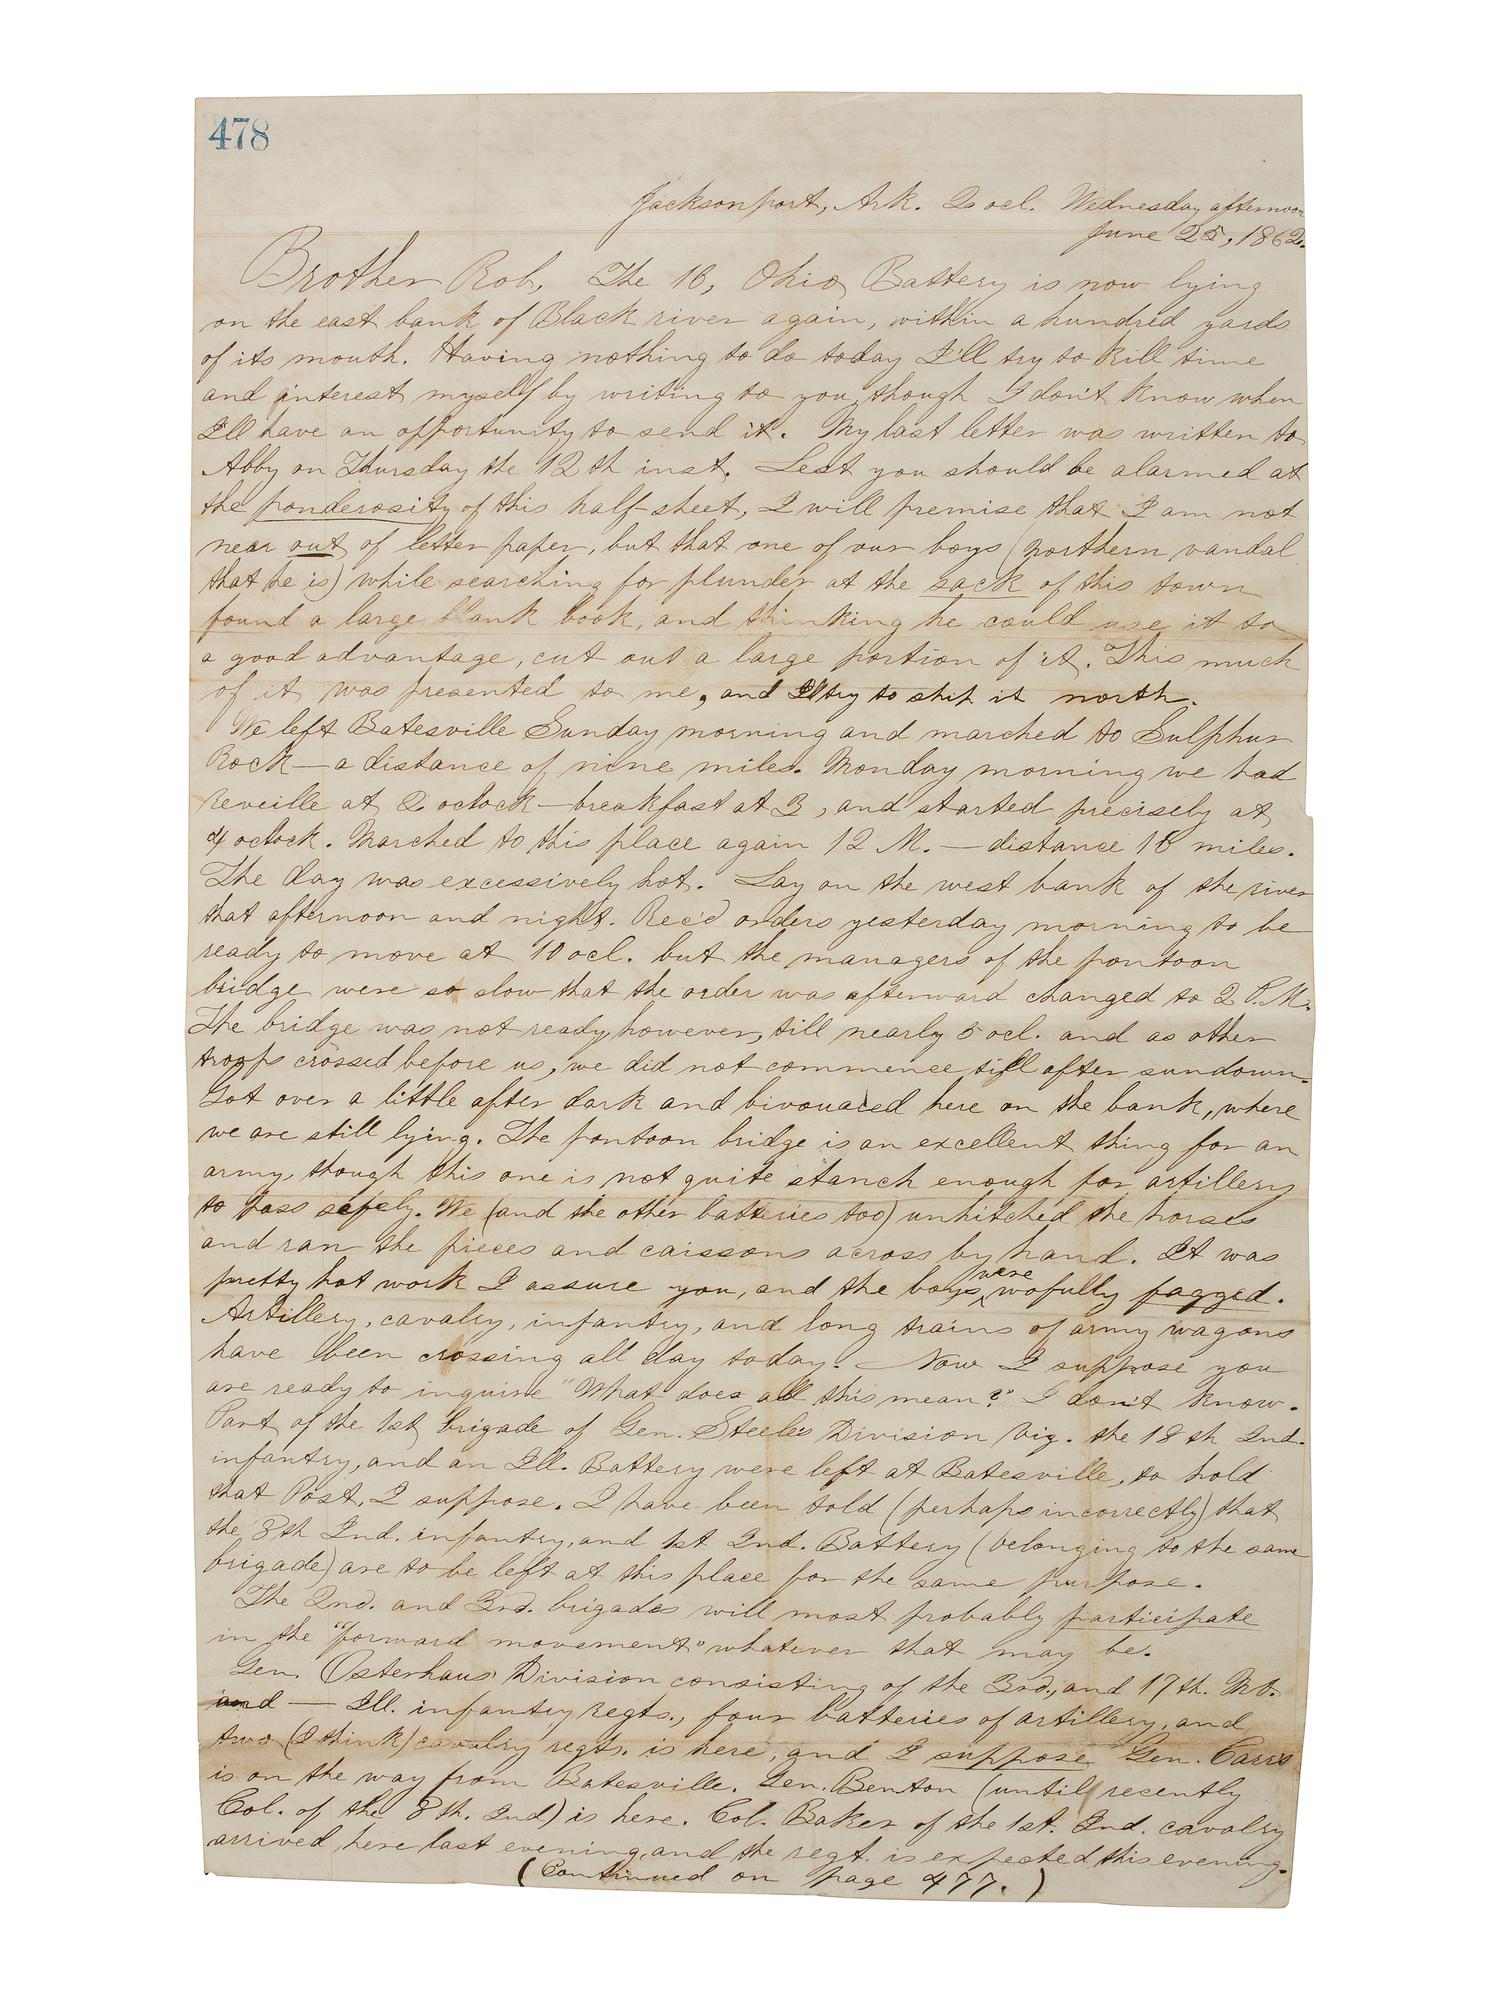 478
Jacksonport, Ark. 2 ocl. Wednesday afternoon
June 25, 1862.
Brother Rob, The 16, Ohio Battery is now lying
on the east bank of Black river again, within a hundred yards
of its mouth. Having nothing to do today I'll try to kill time
and interest myself by writing to you, though I don't know when
I'll have an opportunity to send it. My last letter was written to
Abby on Thursday the 12th inst. Lest you should be alarmed at
the ponderosity of this half-sheet, I will premise that I am not
near out of letter paper, but that one of our boys (northern vandal
that he is) while searching for plunder at the sack of this town
found a large blank book, and thinking he could use it to
a good advantage, cut out a large portion of it. This much
of it was presented to me, and I'll try to ship it north.
We left Batesville Sunday morning and marched to Sulphur
Rock—a distance of nine miles. Monday morning we had
reveille at 2 oclock—breakfast at 3, and started precisely at
4 oclock. Marched to this place again 12 M.—distance 16 miles.
The day was excessively hot. Lay on the west bank of the river
that afternoon and night. Rec'd orders yesterday morning to be
ready to move at 10 ocl. but the managers of the pontoon
bridge were so slow that the order was afterward changed to 2 P.M.
The bridge was not ready, however, till nearly 5 ocl. and as other
troops crossed before us, we did not commence till after sundown.
Got over a little after dark and bivouaced here on the bank, where
we are still lying. The pontoon bridge is an excellent thing for an
army, though this one is not quite stanch enough for artillery
to pass safely. We (and the other batteries too) unhitched the horses
and ran the pieces and caissons across by hand. It was
pretty hot work I assure you, and the boys were wofully fagged.
Artillery, cavalry, infantry, and long trains of army wagons
have been crossing all day today. Now I suppose you
are ready to inquire "What does all this mean?" I don't know.
Part of the 1st brigade of Gen. Steele's Division viz. the 18th Ind.
infantry, and an Ill. Battery were left at Batesville, to hold
that Post, I suppose. I have been told (perhaps incorrectly) that
the 8th Ind. infantry, and 1st Ind. Battery (belonging to the same
brigade) are to be left at this place for the same purpose.
The 2nd. and 3rd. brigades will most probably participate
in the "forward movement" whatever that may be.
Gen. Osterhaus' Division consisting of the 3rd., and 17th. Mo.
and — Ill. infantry regts., four batteries of artillery, and
two (I think) cavalry regts. is here, and I suppose Gen. Carr's
is on the way from Batesville. Gen. Benton (until recently
Col. of the 8th. Ind) is here. Col. Baker of the 1st. Ind. cavalry
arrived here last evening, and the regt. is expected this evening.
(Continued on page 477.)